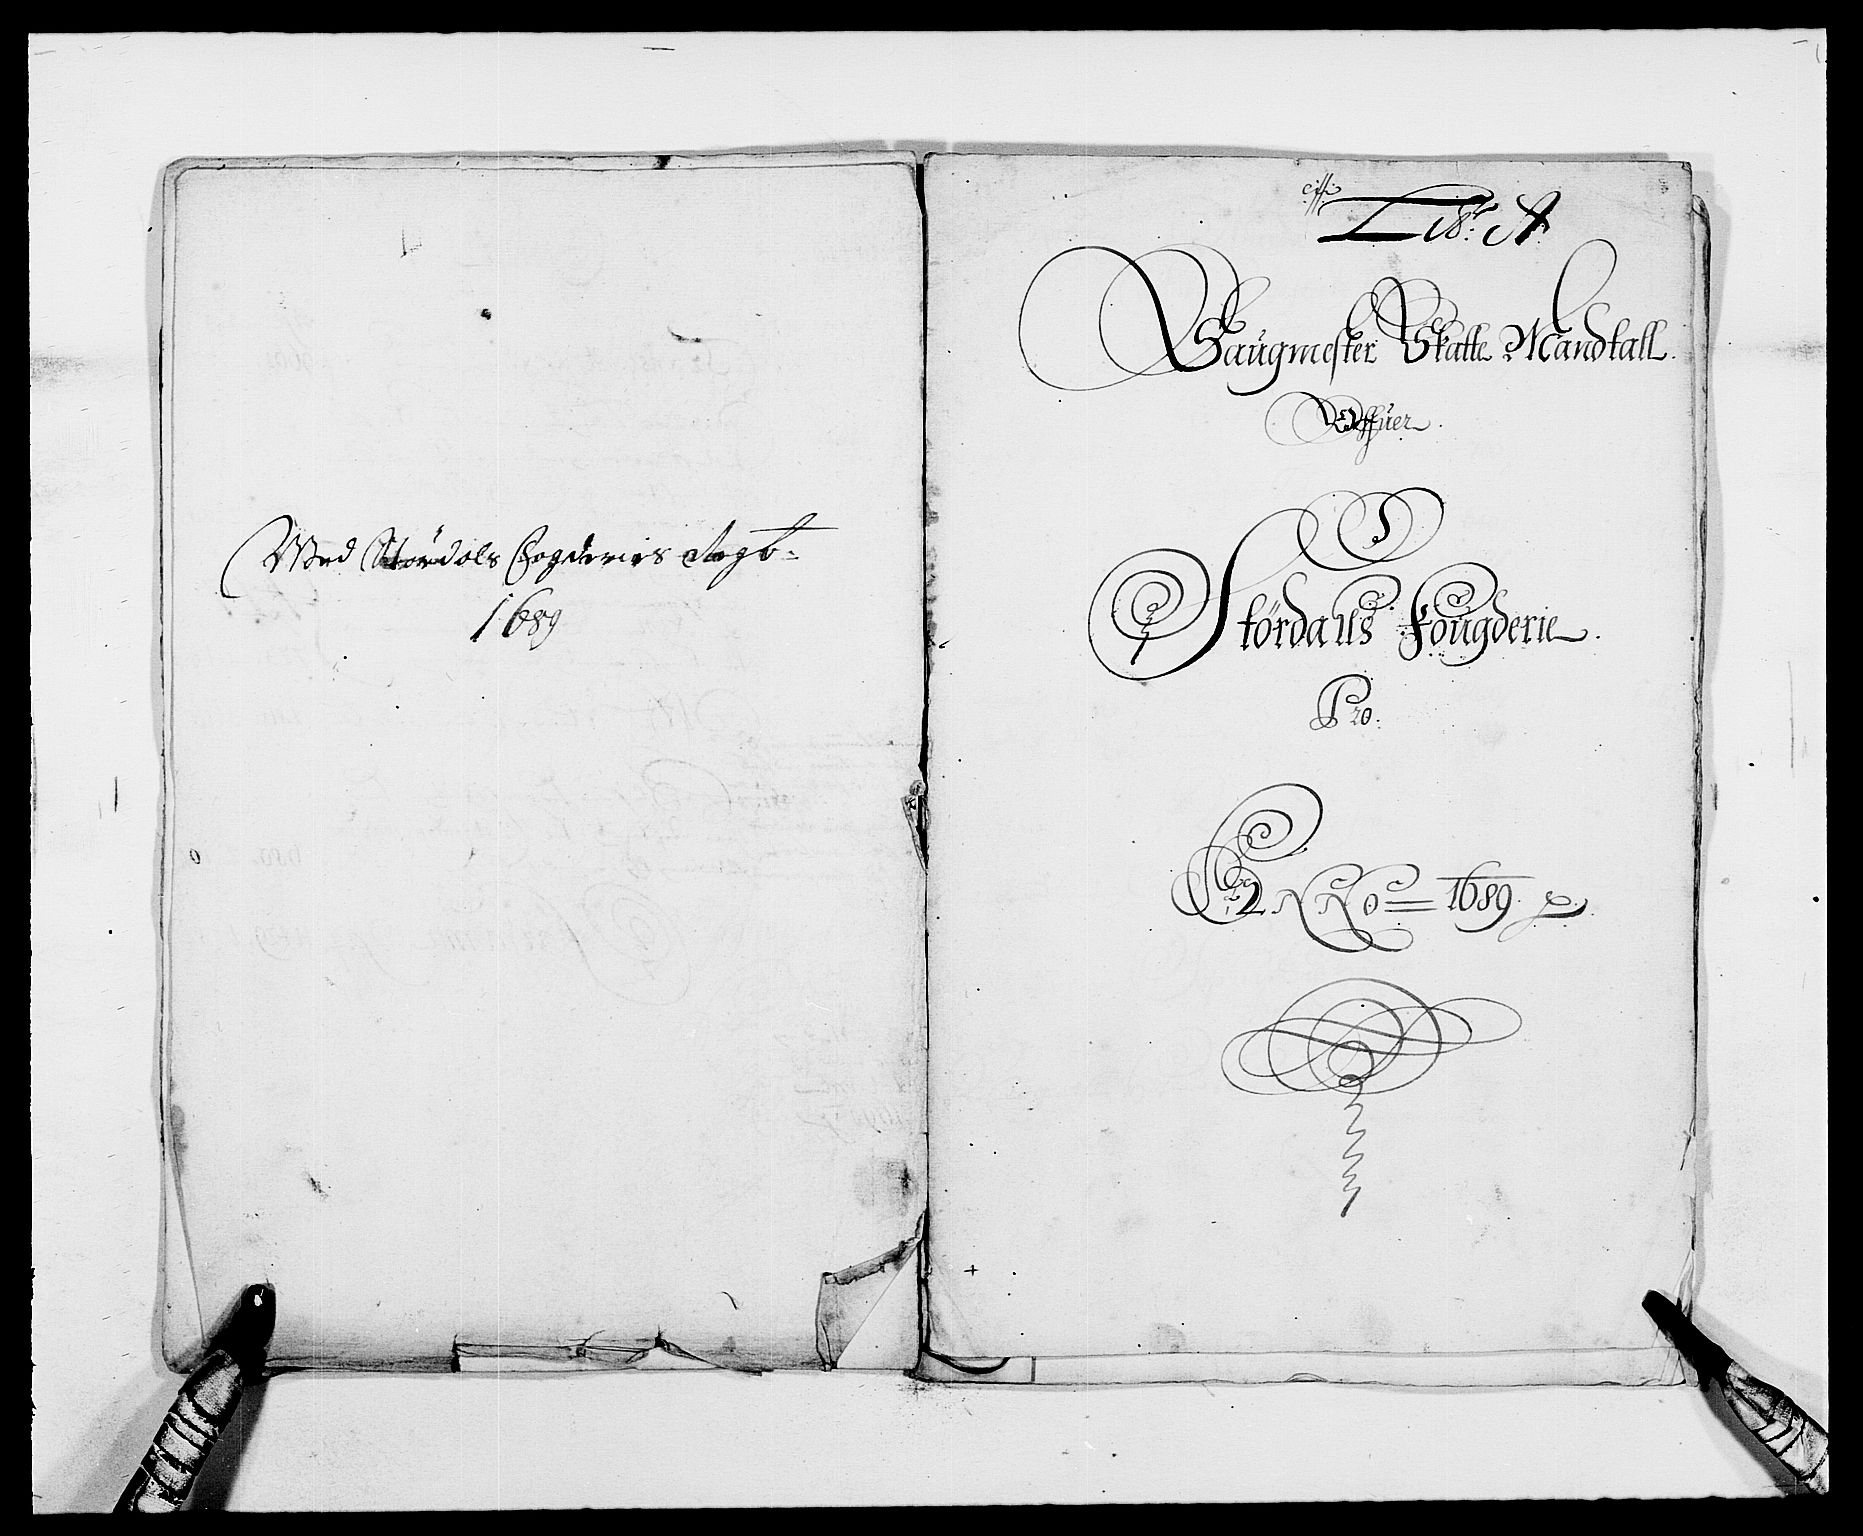 Med Stördals Fogderies Regb:
1689
Litr: A
Saugmester Skatte Mandtall.
Offuer
I
Stördalls Fougderie.
Pro.
ANNO = 1689.